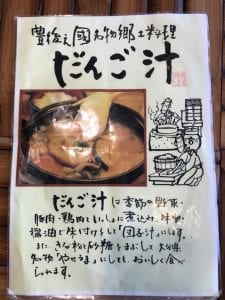 豊後之國名物郷土料理
だんご汁
だんご汁は季節の野菜・
豚肉・鶏肉といっしょに煮込み、味噌・
醤油で味つけをして「団子汁」にします。
また、きな粉と砂糖をまぶして大分県
名物「やせうま」にしても、おいしく食べ
られます。